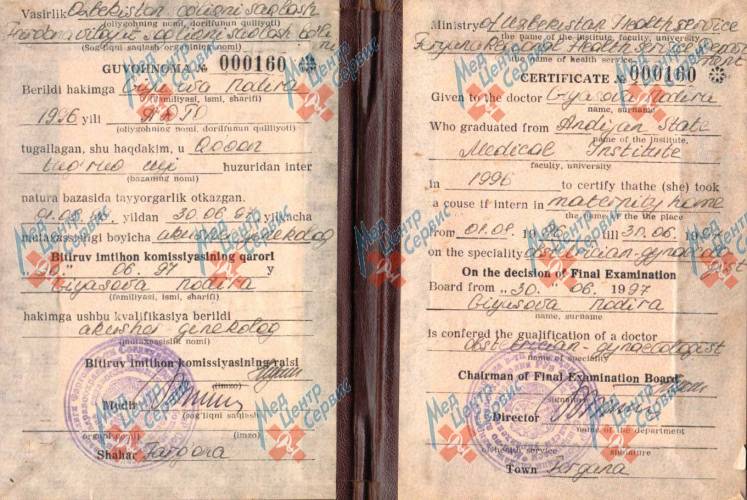 Vazirlik Ozbekiston
(oliygohning nomi, dorilfunun qulliyoti)
(Sog'liqni saqlash organining nomi)
GUVOHNOMA № 000160
Berildi hakimga Giyasova Nodira
(familiyasi, ismi, sharifi)
1996 yili ADTO
(oliygohning nomi, dorilfunun qulliyoti)
tugallagan, shu haqdakim, u Qoqon
huzuridan inter
(bazaning nomi)
natura bazasida tayyorgarlik otkazgan.
yildan 30.06.97 yilkacha
mutaxassisngi boyicha akusher genekolog
Bitiruv imtihon komissiyasining qarori
"30" 06.97 y
Giyasova Nodira
(familiyasi, ismi, sharifi)
hakimga ushbu kvalifikasiya berildi
akusher genekolog
(mutaxassislik nomi)
Bitiruv imtihon komissiyasining raisi
(imzo)
Mudir
(sog'liqni saqlash
(imzo)
Shahar Fargona
Ministry of Uzbekistan Health service
the name of the institute, faculty, university
Fergana Regional Health Service Department
the name of health service
CERTIFICATE № 000160
Given to the doctor Giyasova Nodira
name, surname
Who graduated from Andijan State
name of the institute,
Medical Institute
faculty, university
in 1996 to certify thathe (she) took
a couse if intern in maternity home
the name of the place
from 01.08. 1996 till 30.06. 1997
on the speciality obstetrician-gynaecologist
On the decision of Final Examination
Board from "30" 06. 1997
Giyasova Nodira
name, surname
is confered the gualification of a doctor
obstetrician-gynaecologist
name of specialty
Chairman of Final Examination Board
signature
Director
name of the department
health, service signature
Town Fergana
Мед Центр Сервис